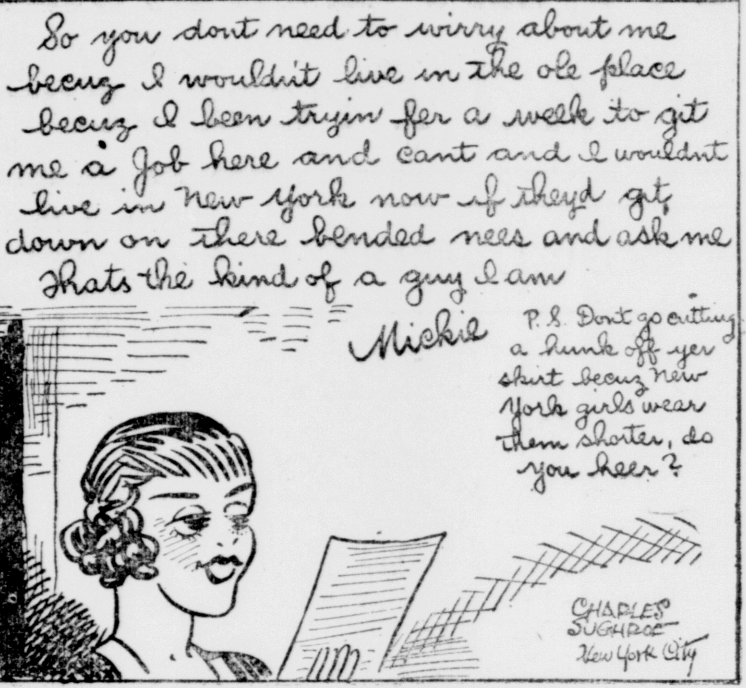 So you dont need to wirry about me
becuz I wouldn't live in the ole place
becuz I been tryin fer a week to git
me a Job here and cant and I wouldnt
live in New York now if they'd git
down on there bended nees and ask me
Thats the kind of a guy I am
Mickie
P.S. Dont go cutting
a hunk off yer
skirt becuz New
York girls wear
them shorter, do
you heer?
CHARLES
SUGHROE
New York City